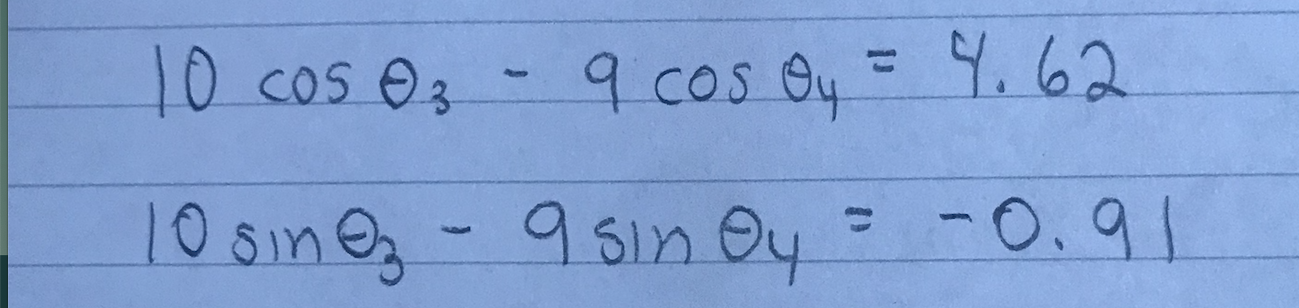 10 cos θ₃ - 9 cos θ₄ = 4.62
10 sin θ₃ - 9 sin θ₄ = -0.91